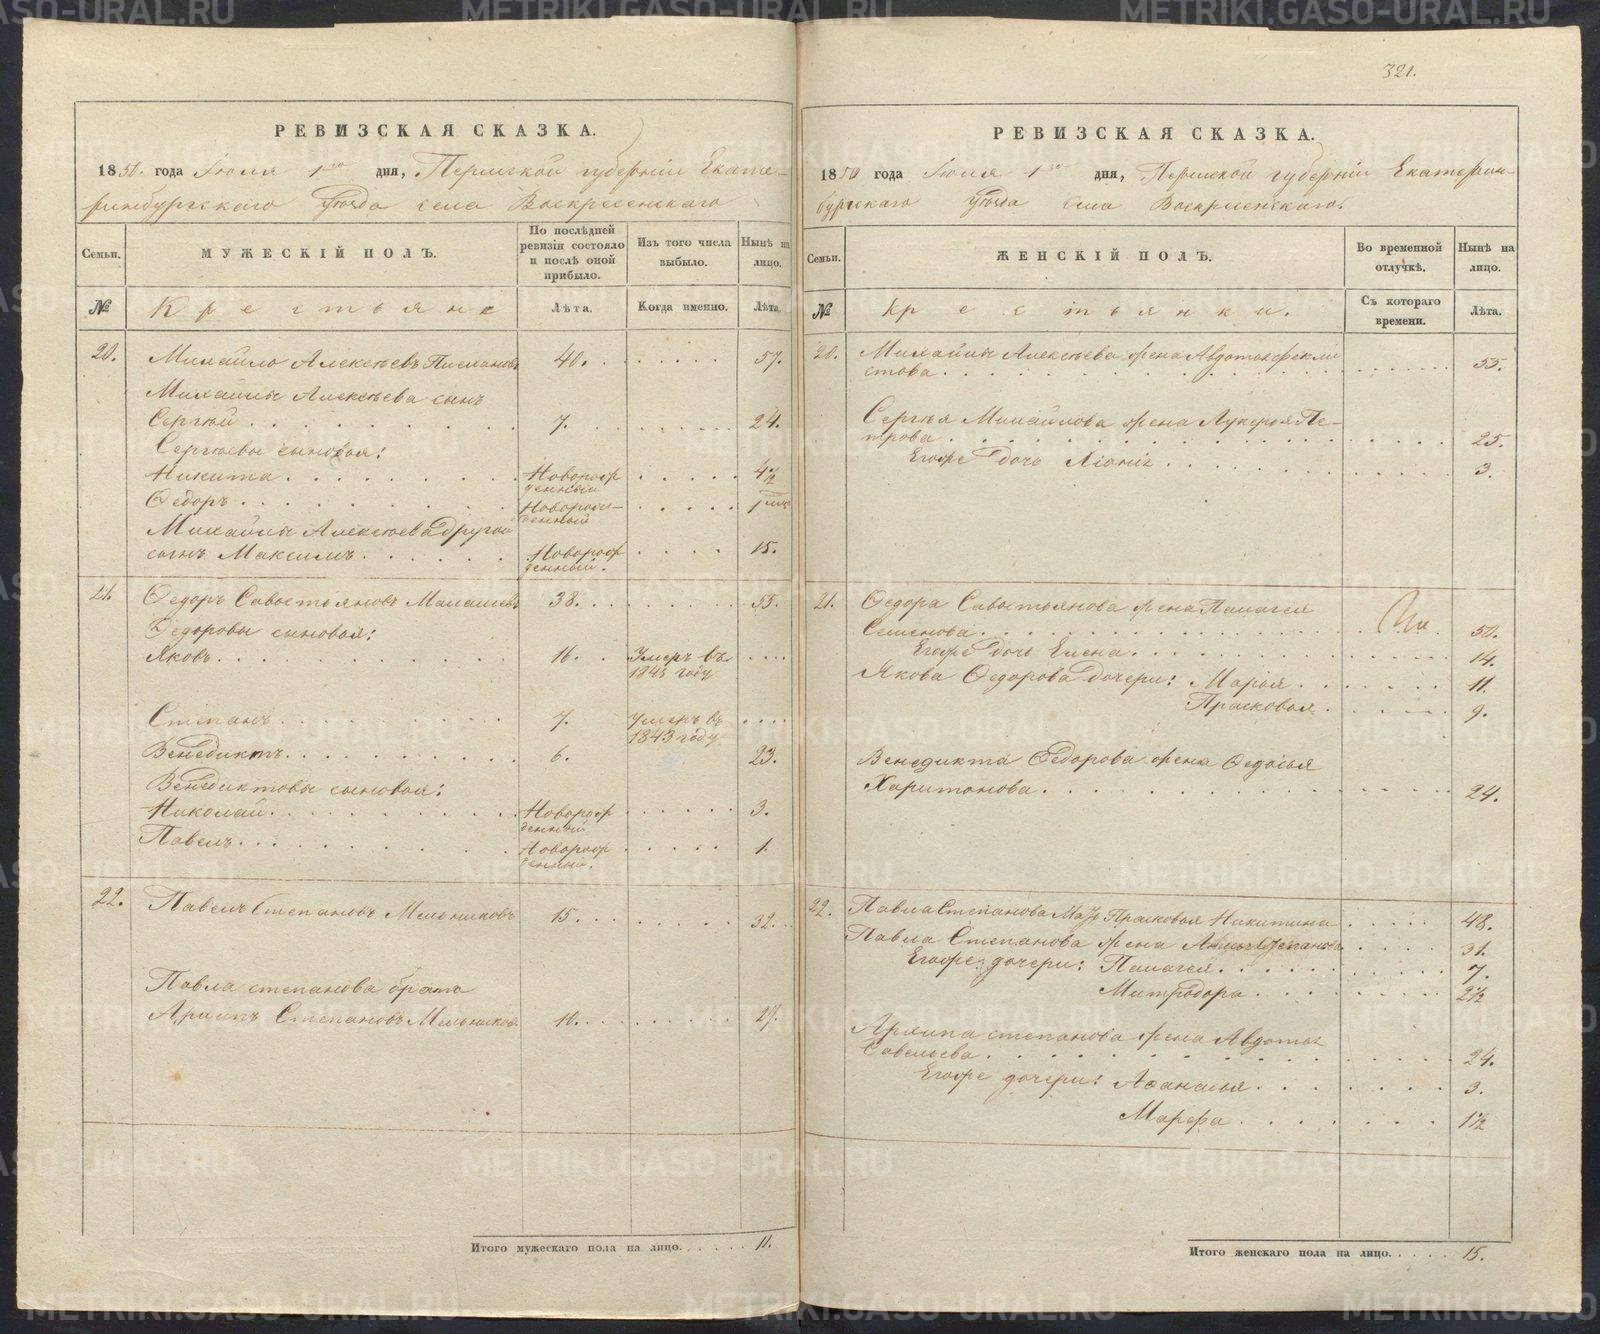 321.
РЕВИЗСКАЯ СКАЗКА.
1850. года Іюля 1го дня, Пермской губерніи Екате-
ринбургскаго Уѣзда села Воскресенскаго
Семьи. МУЖЕСКІЙ ПОЛЪ. По послѣдней ревизіи состояло и послѣ оной прибыло. Изъ того числа выбыло. Нынѣ на лицо.
№ Крестьяне Лѣта. Когда именно. Лѣта.
20. Михайло Алексѣевъ 40. 57.
Михайлы Алексѣева сынъ
Сергѣй 7. 24.
Сергѣевы сыновья:
Никита Новорожденный 4½
Ѳедоръ Новорожденный 1
Михайлы Алексѣева другой
сынъ Максимъ Новорожденный. 15.
21. Ѳедоръ Савостьяновъ 38. 55.
Ѳедоровы сыновья:
Яковъ 16. Умеръ въ 1845 году
Степанъ 7. Умеръ въ 1843 году
Венедиктъ 6. 23.
Венедиктовы сыновья:
Николай Новорожденный 3.
Павелъ Новорожденный. 1.
22. Павелъ Степановъ Мельниковъ 15. 32.
Павла Степанова братъ
Архипъ Степановъ Мельниковъ 10. 27.
Итого мужескаго пола на лицо. 11.
РЕВИЗСКАЯ СКАЗКА.
1850 года Іюля 1го дня, Пермской губерніи Екатерин-
бургскаго Уѣзда села Воскресенскаго.
Семьи. ЖЕНСКІЙ ПОЛЪ. Во временной отлучкѣ. Нынѣ на лицо.
№ Крестьянки. Съ котораго времени. Лѣта.
20. Михайлы Алексѣева жена Авдотья Фекли-
стова 55.
Сергѣя Михайлова жена Лукерья Пе-
трова 25.
Егоже дочь 3.
21. Ѳедора Савостьянова жена Палагея
Семенова 50.
Егоже дочь Елена 14.
Якова Ѳедорова дочери: Марья 11.
Прасковья 9.
Венедикта Ѳедорова жена Ѳедосья
Харитонова 24.
22. Павла Степанова мать Прасковья Никитина 48.
Павла Степанова жена 31.
Егоже дочери: Палагея 7.
Митродора 2½
Архипа Степанова жена Авдотья
Савельева 24.
Егоже дочери: Аѳанасья 3.
Марфа 1½
Итого женскаго пола на лицо. 15.
METRIKI.GASO-URAL.RU